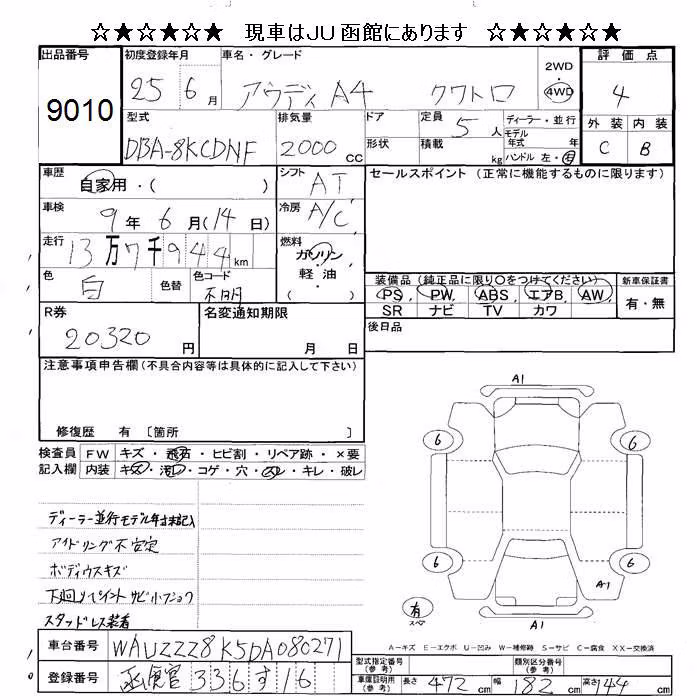 ☆★☆★☆★ 現車はJU函館にあります ☆★☆★☆★
出品番号
9010
初度登録年月
25 6月
車名・グレード
アウディA4 クワトロ
2WD
・
4WD
評価点
4
外装 内装
C B
型式
DBA-8KCDNF
排気量
2000cc
ドア
形状
定員
5人
積載
kg
ディーラー・並行
モデル
年式 年
ハンドル 左・右
車歴
自家用・( )
シフト
AT
車検
9年6月(14日)
冷房
A/C
走行
13万7千944km
燃料
ガソリン
・
軽油
( )
色
白
色替
色コード
不明
セールスポイント(正常に機能するものに限ります)
装備品(純正品に限り○をつけてください)
PS, PW, ABS, エアB, AW,
SR ナビ TV カワ
新車保証書
有・無
R券
20320円
名変通知期限
月 日
後日品
注意事項申告欄(不具合内容等は具体的に記入して下さい)
修復歴 有 〔箇所 〕
検査員
記入欄
FW キズ・飛石・ヒビ割・リペア跡・×要
内装 キズ・汚レ・コゲ・穴・スレ・キレ・破レ
ディーラー並行モデル年式未記入
アイドリング不安定
ボディウスキズ
スタッドレス装着
A1
6 6
6 6
A1
有
スペア
A1
A-キズ E-エクボ U-凹み W-補修跡 S-サビ C-腐食 XX-交換済
車台番号
WAUZZZ8K5DA080271
登録番号
函館300す16
型式指定番号
(参考)
類別区分番号
(参考)
車庫証明用
(参考)
長さ 472cm 幅 182cm 高さ 144cm